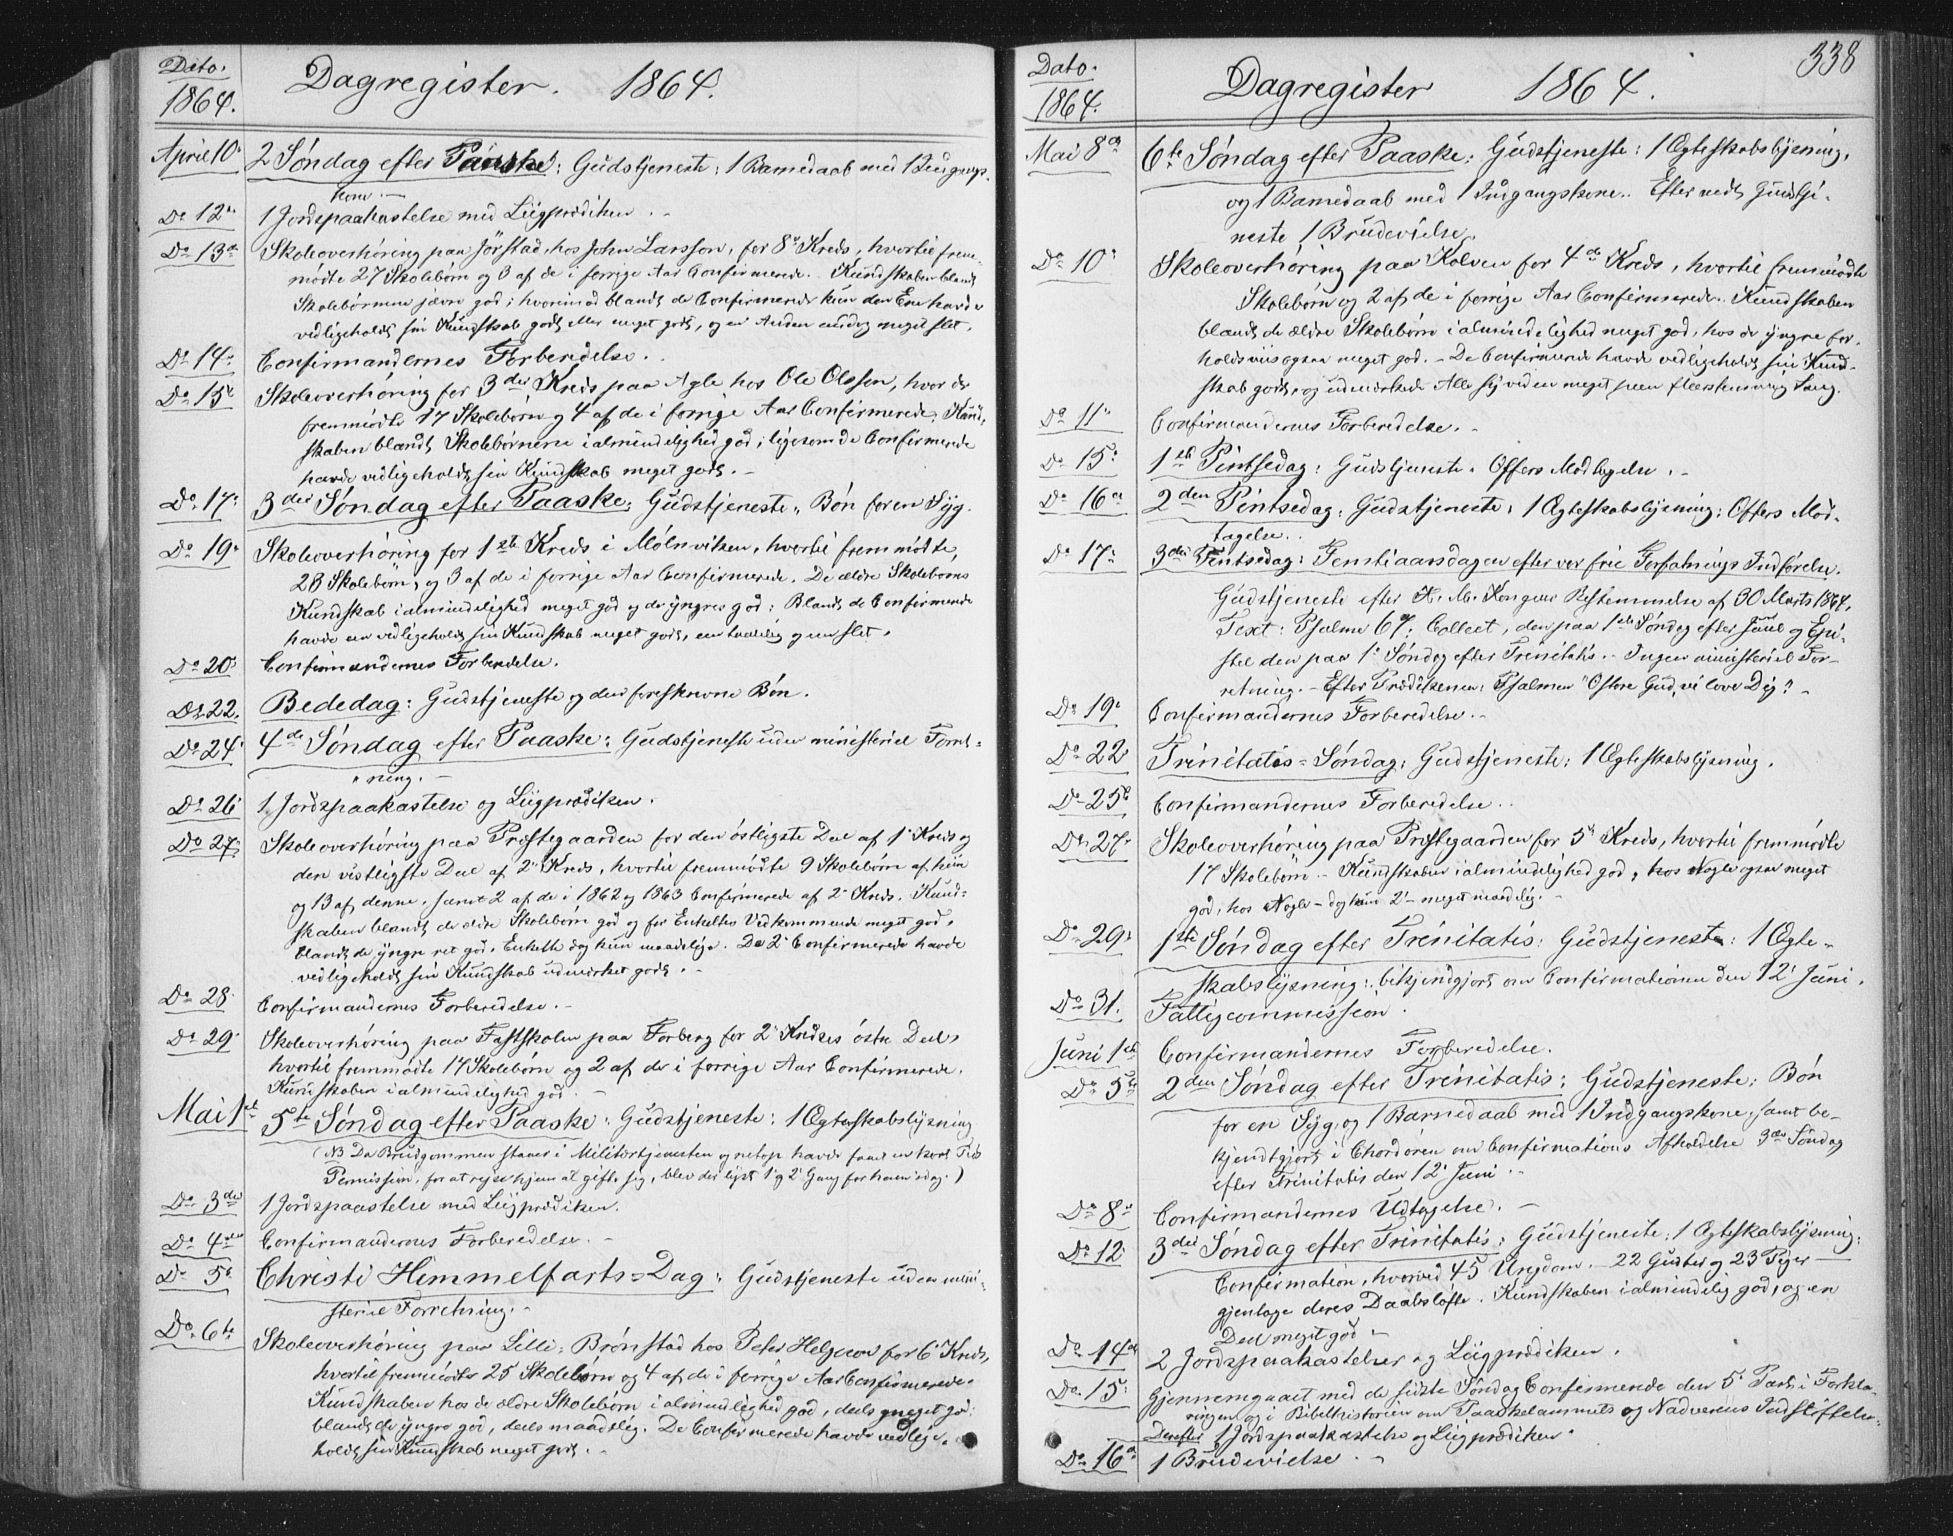 Dato.
1864.
Dagregister. 1864.
April 10. 2 Søndag efter Paaske: Gudstjeneste; 1 Barnedaab med 1 Indgangs-
kone.
Do 12. 1 Jordspaakastelse med Liigprædiken.
Do 13. Skoleoverhøring paa Jörstad, hos John Larsson, for 8 Kreds, hvortil frem-
mødte 27 Skolebørn og 3 af de i forrige Aar Confirmerede. Kundskaben blandt
Skolebørnene jævn god; hvorimod blandt de Confirmerede kun den Ene havde
vedligeholdt sin Kundskab godt eller meget godt, og en Anden endog meget slet.
Do 14. Confirmandernes Forberedelse.
Do 15. Skoleoverhøring for 3die Kreds paa Agle hos Ole Olssen, hvor der
fremmødte 17 Skolebørn og 4 af de i forrige Aar Confirmerede. Kund-
skaben blandt Skolebørnene i almindelighed god; ligesom de Confirmerede
havde vedligeholdt sin Kundskab meget godt.
Do 17. 3die Søndag efter Paaske: Gudstjeneste. Bøn for en Syg.
Do 19. Skoleoverhøring for 1ste Kreds i Mølnviken, hvortil fremmødte
28 Skolebörn, og 3 af de i forrige Aar Confirmerede. De ældre Skoleborns
Kundskab i almindelighed meget god og de yngres god: Blandt de Confirmerede
havde en vedligeholdt sin Kundskab meget godt, en taalelig og en slet.
Do 20. Confirmandernes Forberedelse.
Do 22. Bededag: Gudstjeneste og den foreskrevne Bön.
Do 24. 4de Søndag efter Paaske: Gudstjeneste uden ministeriel Forret-
ning.
Do 26. 1 Jordspaakastelse og Liigprædiken.
Do 27. Skoleoverhøring paa Prestegaarden for den östligste Deel af 1 Kreds og
den vestligste Deel af 2 Kreds, hvortil fremmødte 9 Skolebörn af hiin
og 13 af denne, samt 2 af de i 1862 og 1863 Confirmerede af 2 Kreds. Kund-
skaben blandt de ældre Skolebørn god og for Enkeltes Vedkommende meget god,
blandt de yngre ret god, Enkelte dog kun maadelige. De 2 Confirmerede havde
vedligeholdt sin Kundskab udmærket godt.
Do 28. Confirmandernes Forberedelse.
Do 29. Skoleoverhøring paa Fastskolen paa Forberg for 2 Kredses østre Deel,
hvortil fremmødte 17 Skolebørn og 2 af de i forrige Aar Confirmerede.
Kundskaben i almindelighed god.
Mai 1ste 5te Søndag efter Paaske: Gudstjeneste: 1 Ægteskabslysning
(NB Da Brudgommen staaer i Militærtjenesten og netop havde faaet en kort Tids
Permission, for at rejse hjem at gifte sig, blev der lyst 1 og 2 Gang for ham idag.)
Do 3die 1 Jordspaastelse med Liigprædiken.
Do 4de Confirmandernes Forberedelse.
Do 5. Christi Himmelfarts-Dag: Gudstjeneste uden mini-
steriel Forretning.
Do 6te Skoleoverhøring paa Lille-Brønstad hos Peter Helgesen for 6 Kreds,
hvortil fremmødte 25 Skolebørn og 4 af de i forrige Aar Confirmerede.
Kundskaben hos de ældre Skolebørn i almindelighed god, deels meget god;
blandt de yngre god, deels maadelig. De Confirmerede havde vedlige-
holdt sin Kundskab meget godt.
338
Dato.
1864.
Dagregister 1864.
Mai 8de 6te Søndag efter Paaske: Gudstjeneste: 1 Ægteskabslysning,
og 1 Barnedaab med 1 Indgangskone. Efter endt Gudstje-
neste 1 Brudevielse.
Do 10. Skoleoverhøring paa Kolven for 4de Kreds, hvortil fremmødte
Skolebørn og 2 af de i forrige Aar Confirmerede. Kundskaben
blandt de ældre Skolebørn i almindelighed meget god, hos de yngre for-
holdsviis ogsaa meget god. De Confirmerede havde vedligeholdt sin Kund-
skab godt, og udmærkede Alle sig ved en meget peen fleerstemmig Sang.
Do 11. Confirmandernes Forberedelse.
Do 15. 1ste Pintsedag: Gudstjeneste. Offers Modtagelse.
Do 16. 2den Pintsedag: Gudstjeneste; 1 Ægteskabslysning; Offers Mod-
tagelse.
Do 17. 3die Pintsedag: Femtiaarsdagen efter vor frie Forfatnings Indførelse.
Gudstjeneste efter H. M. Kongens Bestemmelse af 30 Marts 1864,
Text: Psalme 67: Collect, den paa 1ste Søndag efter Juul og Epi-
stel den paa 1 Søndag efter Trinitatis. Ingen ministeriel For-
retning. Efter Prædikenen: Psalmen "O store Gud, vi love Dig".
Do 19. Confirmandernes Forberedelse.
Do 22. Trinitatis-Søndag: Gudstjeneste; 1 Ægteskabslysning.
Do 25. Confirmandernes Forberedelse.
Do 27. Skoleoverhøring paa Prestegaarden for 5 Kreds, hvortil fremmødte
17 Skolebörn. Kundskaben i almindelighed god, hos Nogle ogsaa meget
god, hos Nogle – dog kun 2 – meget maadelig.
Do 29. 1ste Søndag efter Trinitatis: Gudstjeneste: 1 Ægte-
skabslysning: bekjendtgjort om Confirmationen den 12 Juni.
Do 31. Fattigcommission.
Juni 1ste Confirmandernes Forberedelse.
Do 5te 2den Søndag efter Trinitatis: Gudstjeneste: Bøn
for en Syg, og 1 Barnedaab med 1 Indgangskone, samt be-
kjendtgjort i Chordøren om Confirmationens Afholdelse 3die Søndag
efter Trinitatis den 12 Juni.
Do 8. Confirmandernes Udtagelse.
Do 12. 3die Søndag efter Trinitatis: Gudstjeneste; 1 Ægteskabslysning;
Confirmation, hvorved 45 Ungdom – 22 Gutter og 23 Piger –
gjentage deres Daabsløfte. Kundskaben i almindelig god, og en
Deel meget god.
Do 14de 2 Jordspaakastelser og Liigprædiken.
Do 15. Gjennemgaaet med de sidste Søndag Confirmerede den 5 Part i Forkla-
ringen og i Bibelhistorien om Paaskelammets og Nadverens Indstiftelse.
Derefter 1 Jordspaakastelse og Liigprædiken.
Do 16. 1 Brudevielse.